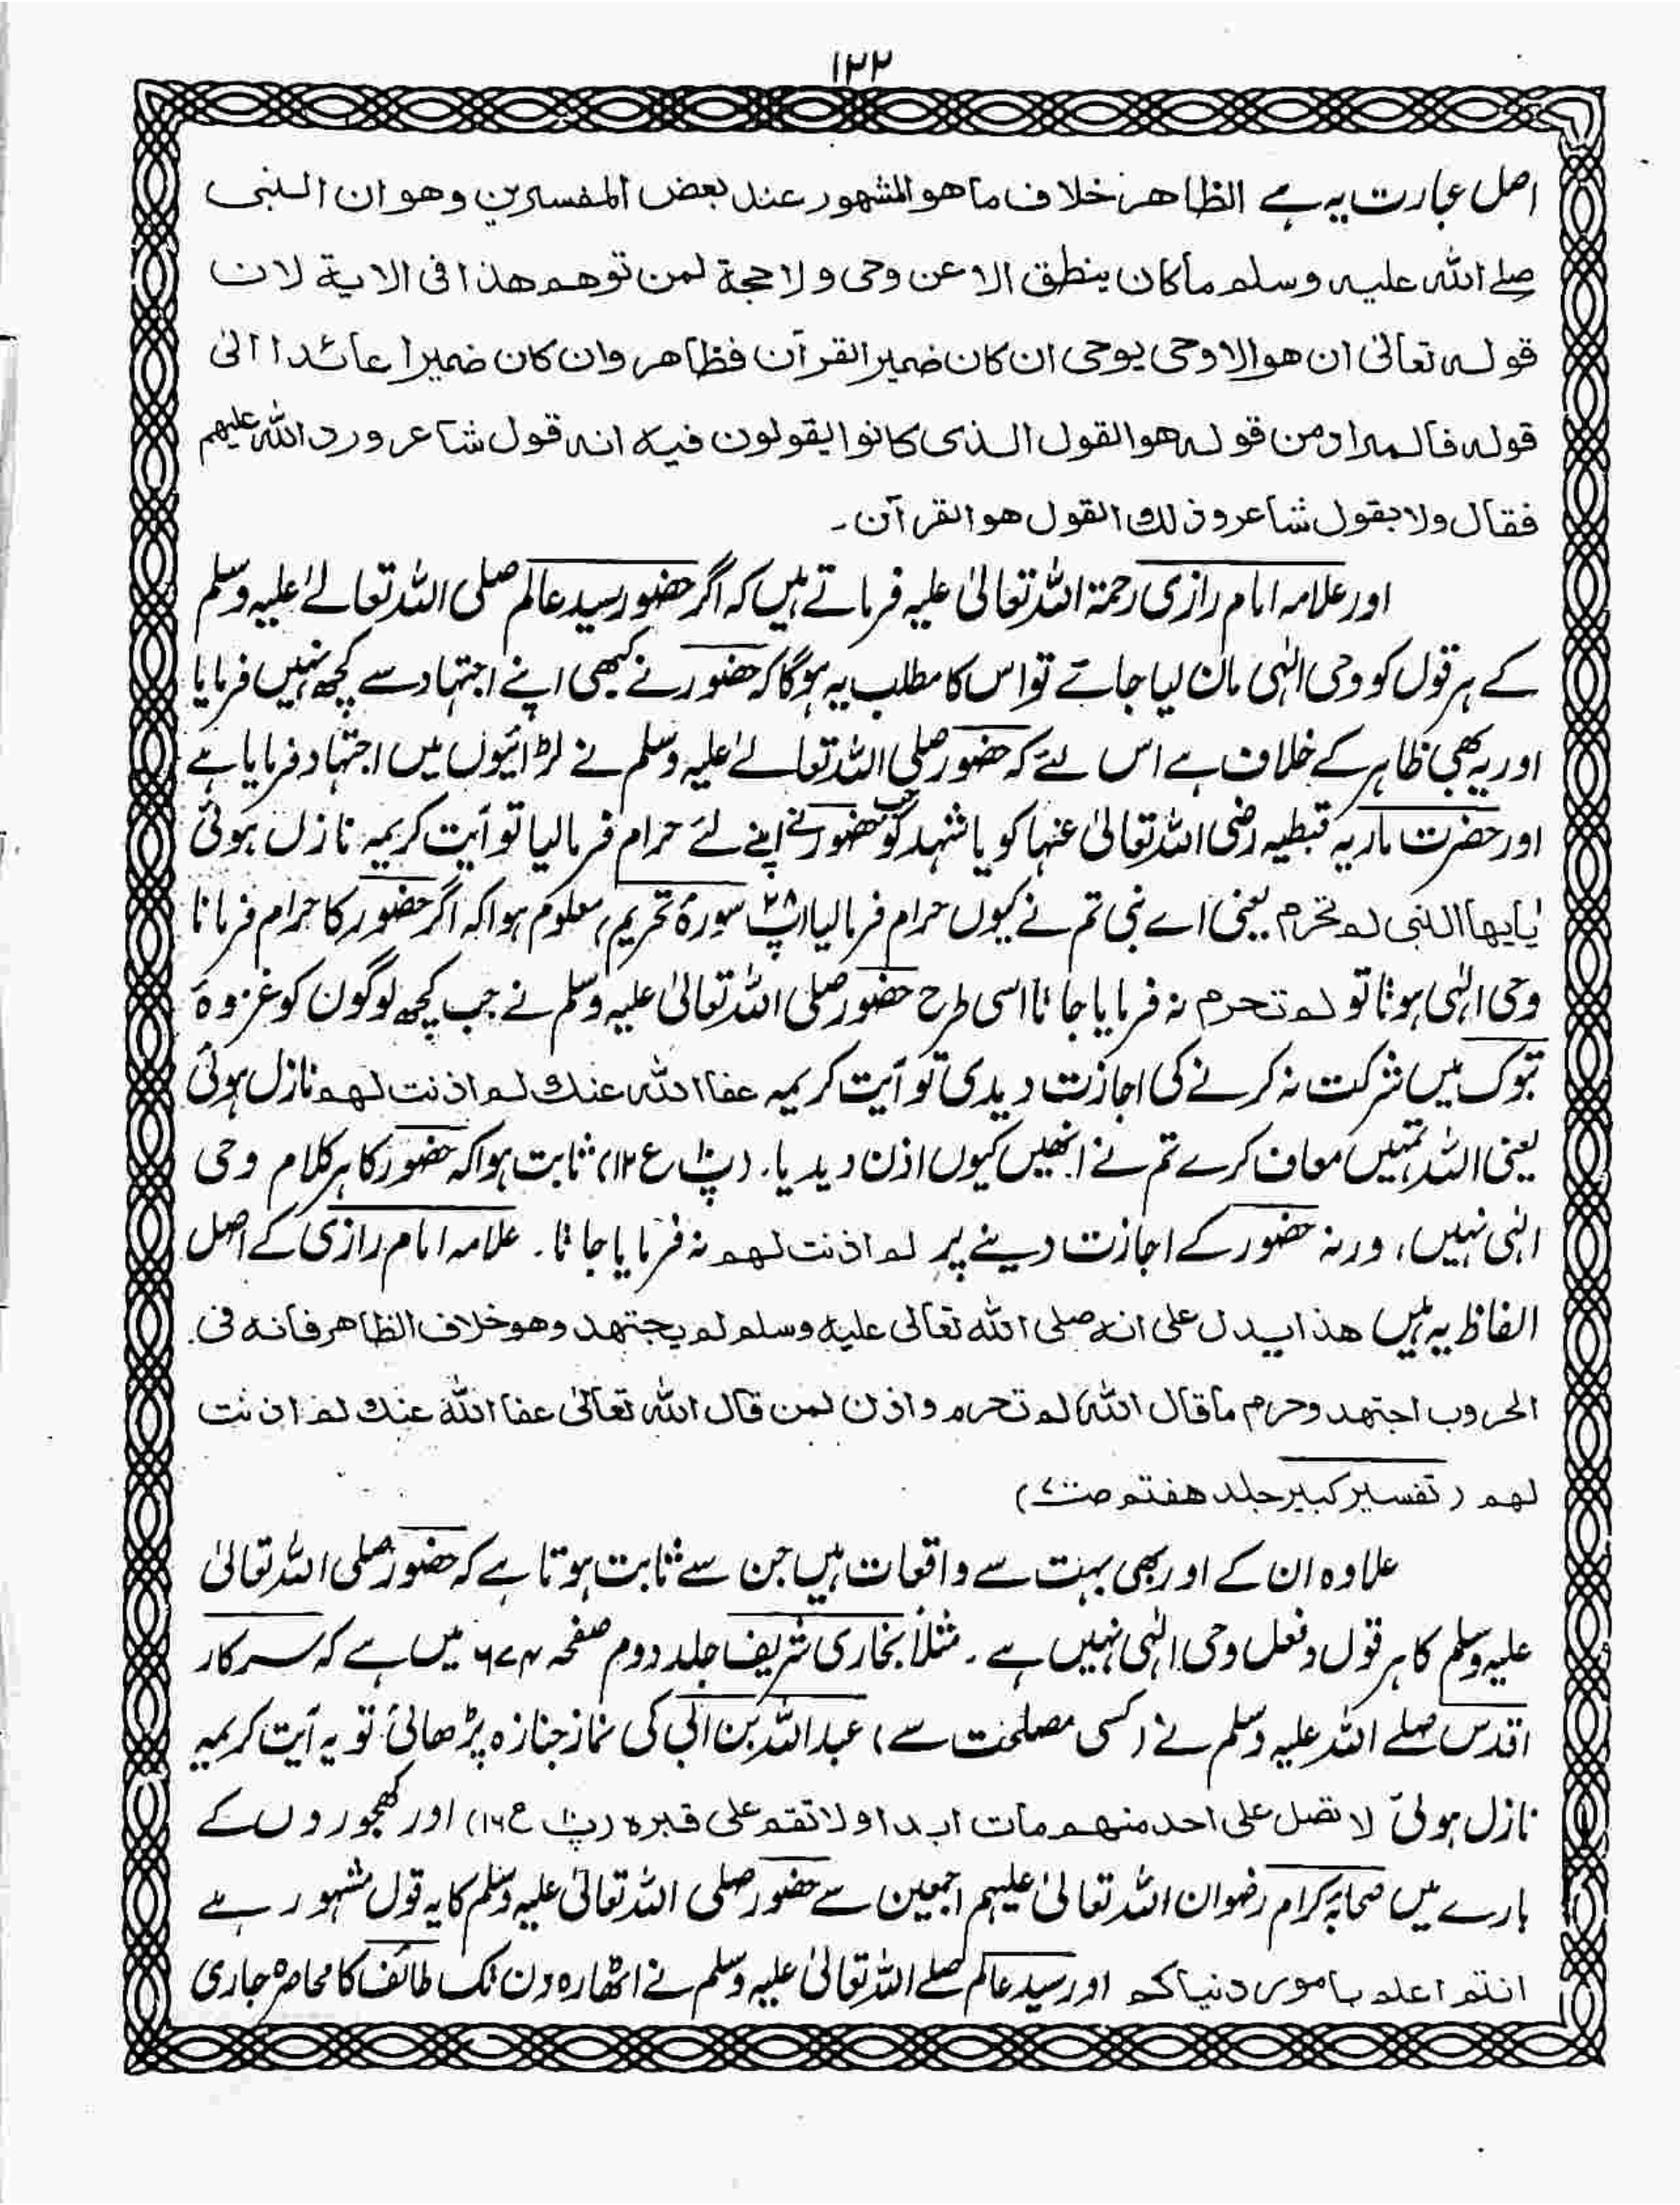 ۱۲۲
اصل عبارت یہ ہے الظاهر خلاف ماهوالمشهور عند بعض المفسرین وهوان النبی
صلے اللہ علیہ وسلم ماکان ینطق الا عن وحی ولا حجة لمن توهم هذا فی الایة لان
قوله تعالیٰ ان هوالا وحی یوحی ان کان ضمیر القرآن فظاهر وان کان ضمیرا عائدا الیٰ
قوله فالمراد من قوله هوالقول الذی کانوا یقولون فیه انه قول شاعر ورد اللہ علیهم
فقال ولا بقول شاعر وذلك القول هوالقرآن۔
اور علامہ امام رازی رحمۃ اللہ تعالیٰ علیہ فرماتے ہیں کہ اگر حضور سید عالم صلی اللہ تعالےٰ علیہ وسلم
کے ہر قول کو وحی الٰہی مان لیا جائے تو اس کا مطلب یہ ہوگا کہ حضور نے کبھی اپنے اجتہاد سے کچھ نہیں فرمایا
اور یہ بھی ظاہر کے خلاف ہے اس لئے کہ حضور صلی اللہ تعالےٰ علیہ وسلم نے لڑائیوں میں اجتہاد فرمایا ہے
اور حضرت ماریہ قبطیہ رضی اللہ تعالیٰ عنہا کو یا شہد کو جب حضور نے اپنے لئے حرام فرمالیا تو آیت کریمہ نازل ہوئی
یٰایها النبی لم تحرم یعنی اے نبی تم نے کیوں حرام فرمالیا (پ۲۸ سورۂ تحریم) معلوم ہوا کہ اگر حضور کا حرام فرمانا
وحی الٰہی ہوتا تو لم تحرم نہ فرمایا جاتا اسی طرح حضور صلی اللہ تعالیٰ علیہ وسلم نے جب کچھ لوگوں کو غزوۂ
تبوک میں شرکت نہ کرنے کی اجازت دیدی تو آیت کریمہ عفا اللہ عنك لم اذنت لهم نازل ہوئی
یعنی اللہ تمہیں معاف کرے تم نے انھیں کیوں اذن دیدیا۔ (پ۱۰ ع ۱۲) ثابت ہوا کہ حضور کا ہر کلام وحی
الٰہی نہیں، ورنہ حضور کے اجازت دینے پر لم اذنت لهم نہ فرمایا جاتا۔ علامہ امام رازی کے اصل
الفاظ یہ ہیں هذا یدل علی انه صلی اللہ تعالی علیه وسلم لم یجتهد وهو خلاف الظاهر فانه فی
الحروب اجتهد وحرم ماقال اللہ لم تحرم واذن لمن قال اللہ تعالیٰ عفا اللہ عنك لم اذنت
لهم (تفسیر کبیر جلد هفتم
علاوہ ان کے اور بھی بہت سے واقعات ہیں جن سے ثابت ہوتا ہے کہ حضور صلی اللہ تعالیٰ
علیہ وسلم کا ہر قول و فعل وحی الٰہی نہیں ہے۔ مثلاً بخاری شریف جلد دوم صفحہ ۶۷۴ میں ہے کہ سرکار
اقدس صلے اللہ علیہ وسلم نے (کسی مصلحت سے) عبداللہ بن ابی کی نماز جنازہ پڑھائی۔ تو یہ آیت کریمہ
نازل ہوئی لا تصل علی احد منهم مات ابدا ولا تقم علی قبره (پ۱۰ ع۱۷) اور کھجوروں کے
بارے میں صحابۂ کرام رضوان اللہ تعالیٰ علیہم اجمعین سے حضور صلی اللہ تعالیٰ علیہ وسلم کا یہ قول مشہور ہے
انتم اعلم بامور دنیاکم اور سید عالم صلے اللہ تعالیٰ علیہ وسلم نے اٹھارہ دن تک طائف کا محاصرہ جاری